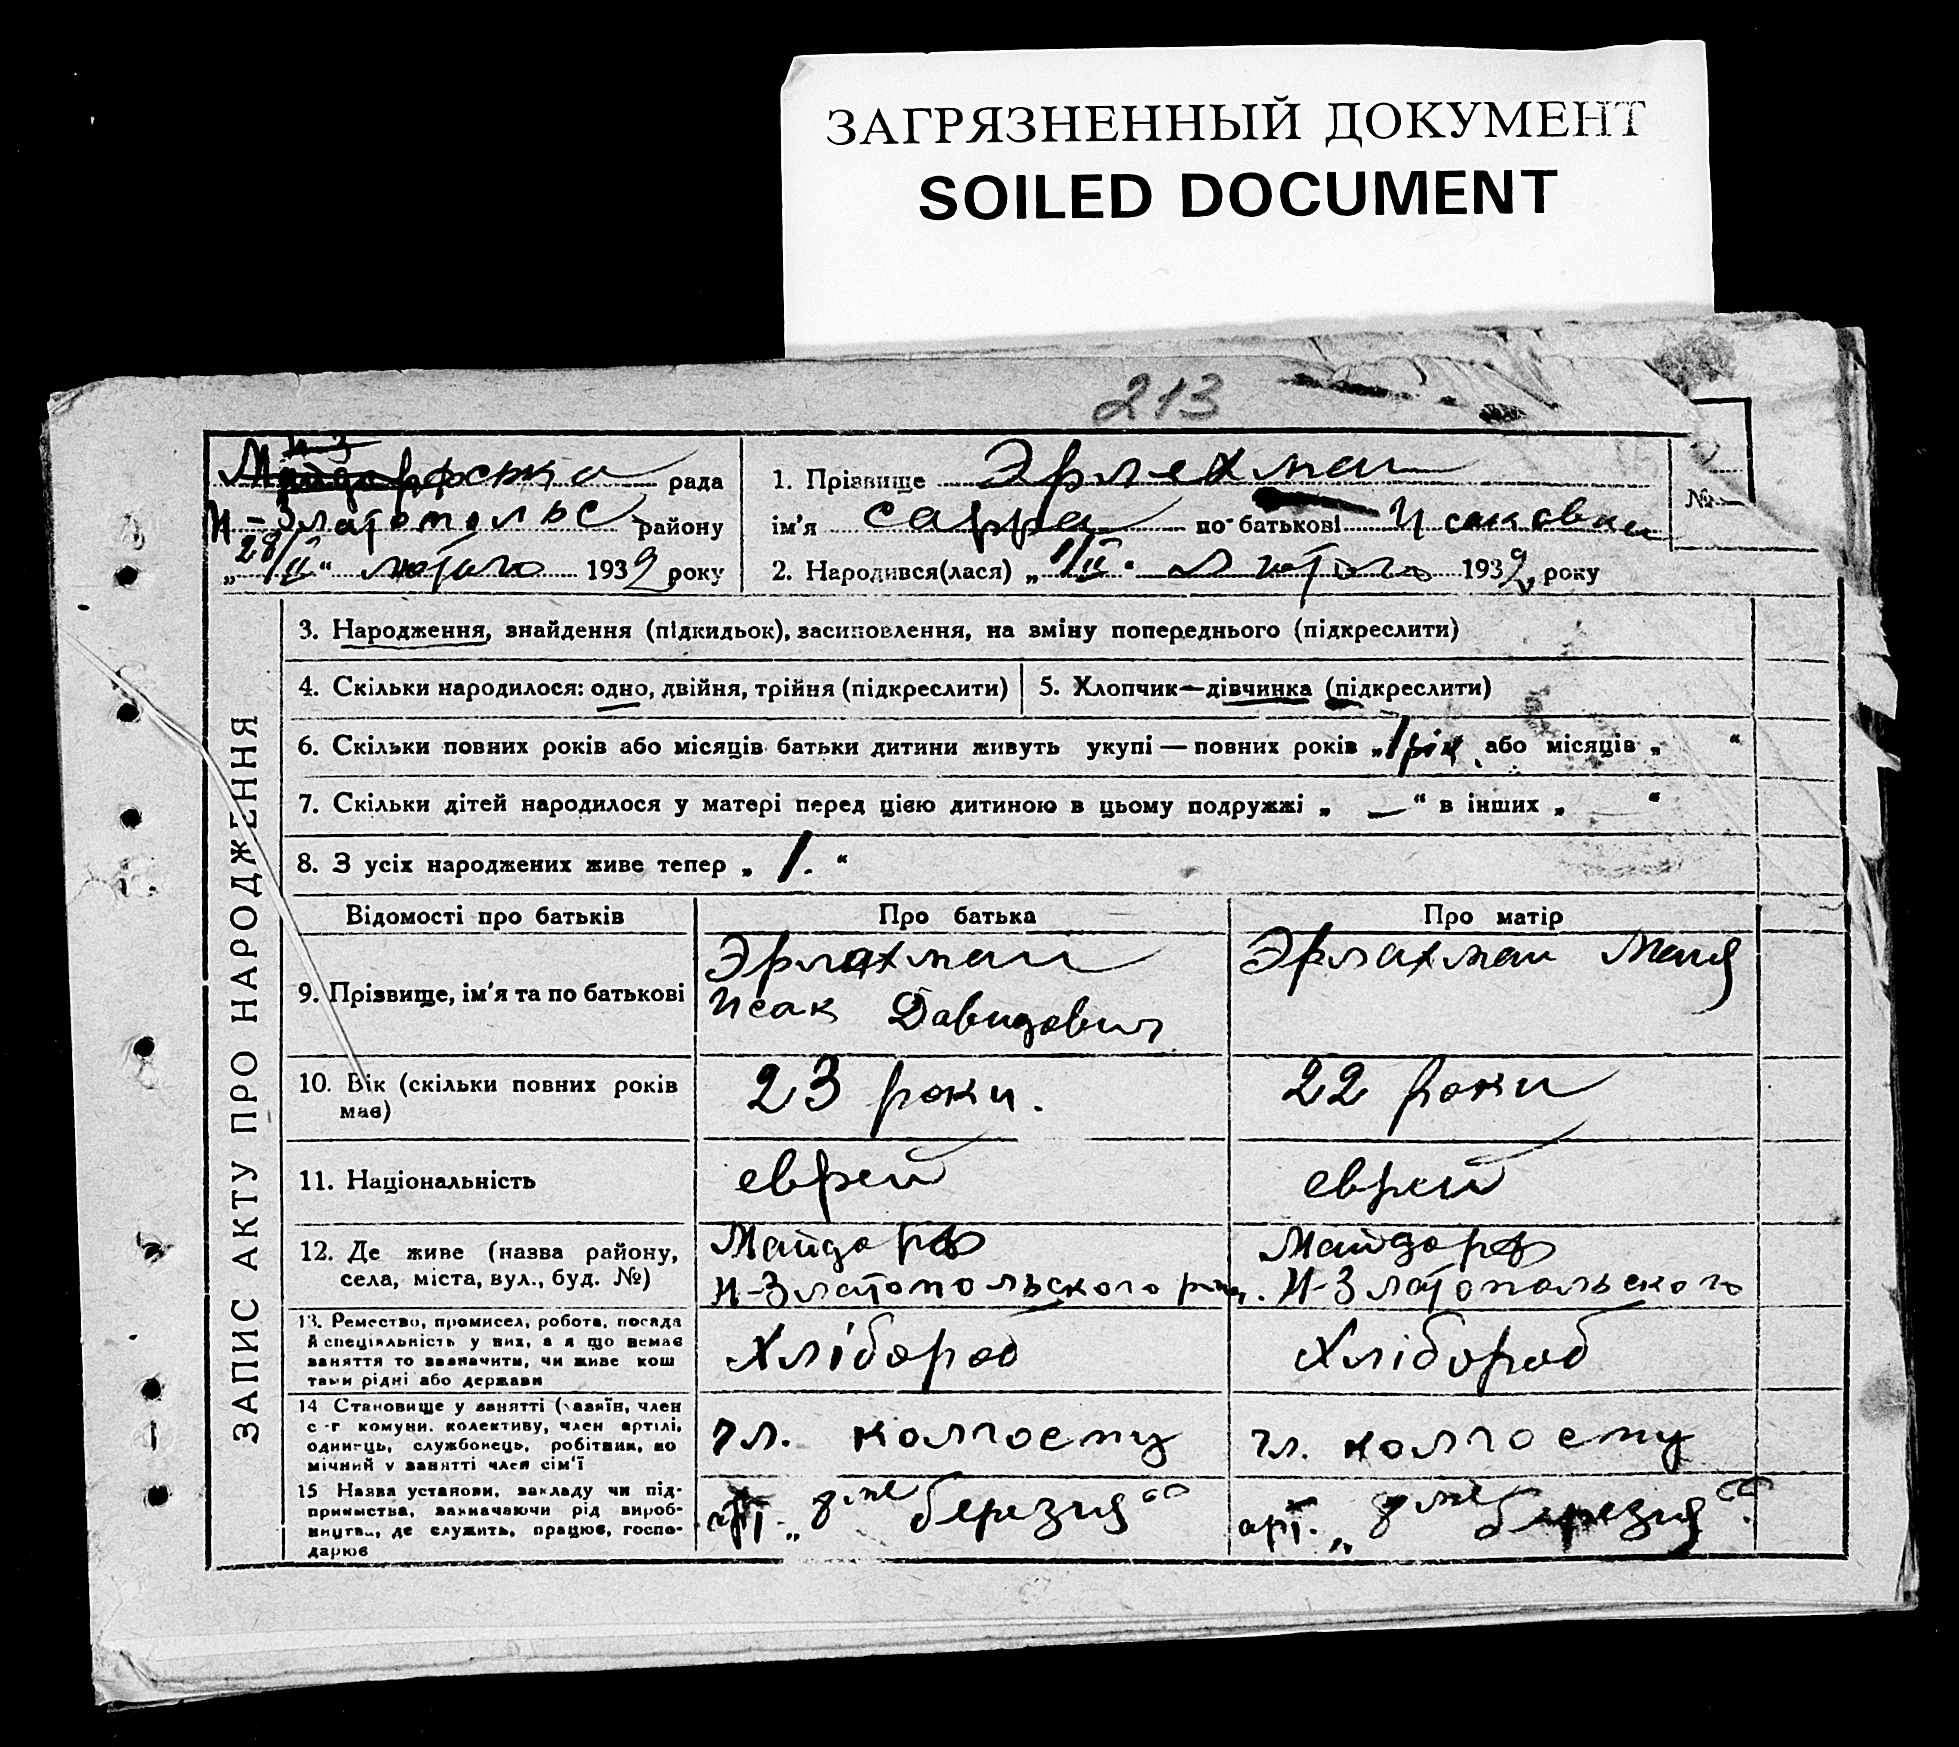 ЗАГРЯЗНЕННЫЙ ДОКУМЕНТ
SOILED DOCUMENT
213
рада
Н-Златопольс району
„28/II“ лютого 1932 року
1. Прізвище Эрлехман
ім'я Сарра по-батькові Исаковна
№
2. Народився(лася) „1/II“ лютого 1932 року
ЗАПИС АКТУ ПРО НАРОДЖЕННЯ
3. Народження, знайдення (підкидьок), засиновлення, на зміну попереднього (підкреслити)
4. Скільки народилося: одно, двійня, трійня (підкреслити)
5. Хлопчик—дівчинка (підкреслити)
6. Скільки повних років або місяців батьки дитини живуть укупі — повних років „1 рік, або місяців „ “
7. Скільки дітей народилося у матері перед цією дитиною в цьому подружжі „ — “ в інших „ — “
8. З усіх народжених живе тепер „ 1. “
Відомості про батьків
Про батька
Про матір
9. Прізвище, ім'я та по батькові
Эрлахман
Исак Давидович
Эрлахман Маня
10. Вік (скільки повних років
має)
23 роки.
22 роки
11. Національність
еврей
еврей
12. Де живе (назва району,
села, міста, вул., буд. №)
Майдорф
Н-Златопольского
Майдорф
Н-Златопольского
13. Ремество, промисел, робота, посада
й спеціяльність у них, а я що немає
заняття то зазначити, чи живе кош
тами рідні або держави
Хлібороб
Хлібороб
14 Становище у занятті (хазяїн, член
с-г комуни, колективу, член артілі,
одинець, службовець, робітник, по
мічний у занятті член сім'ї
чл. колгоспу
чл. колгоспу
15 Назва установи, закладу чи під-
приємства, зазначаючи рід вироб-
ництва, де служить, працює, госпо-
дарює
арт. „8ме березня“
арт. „8ме березня“